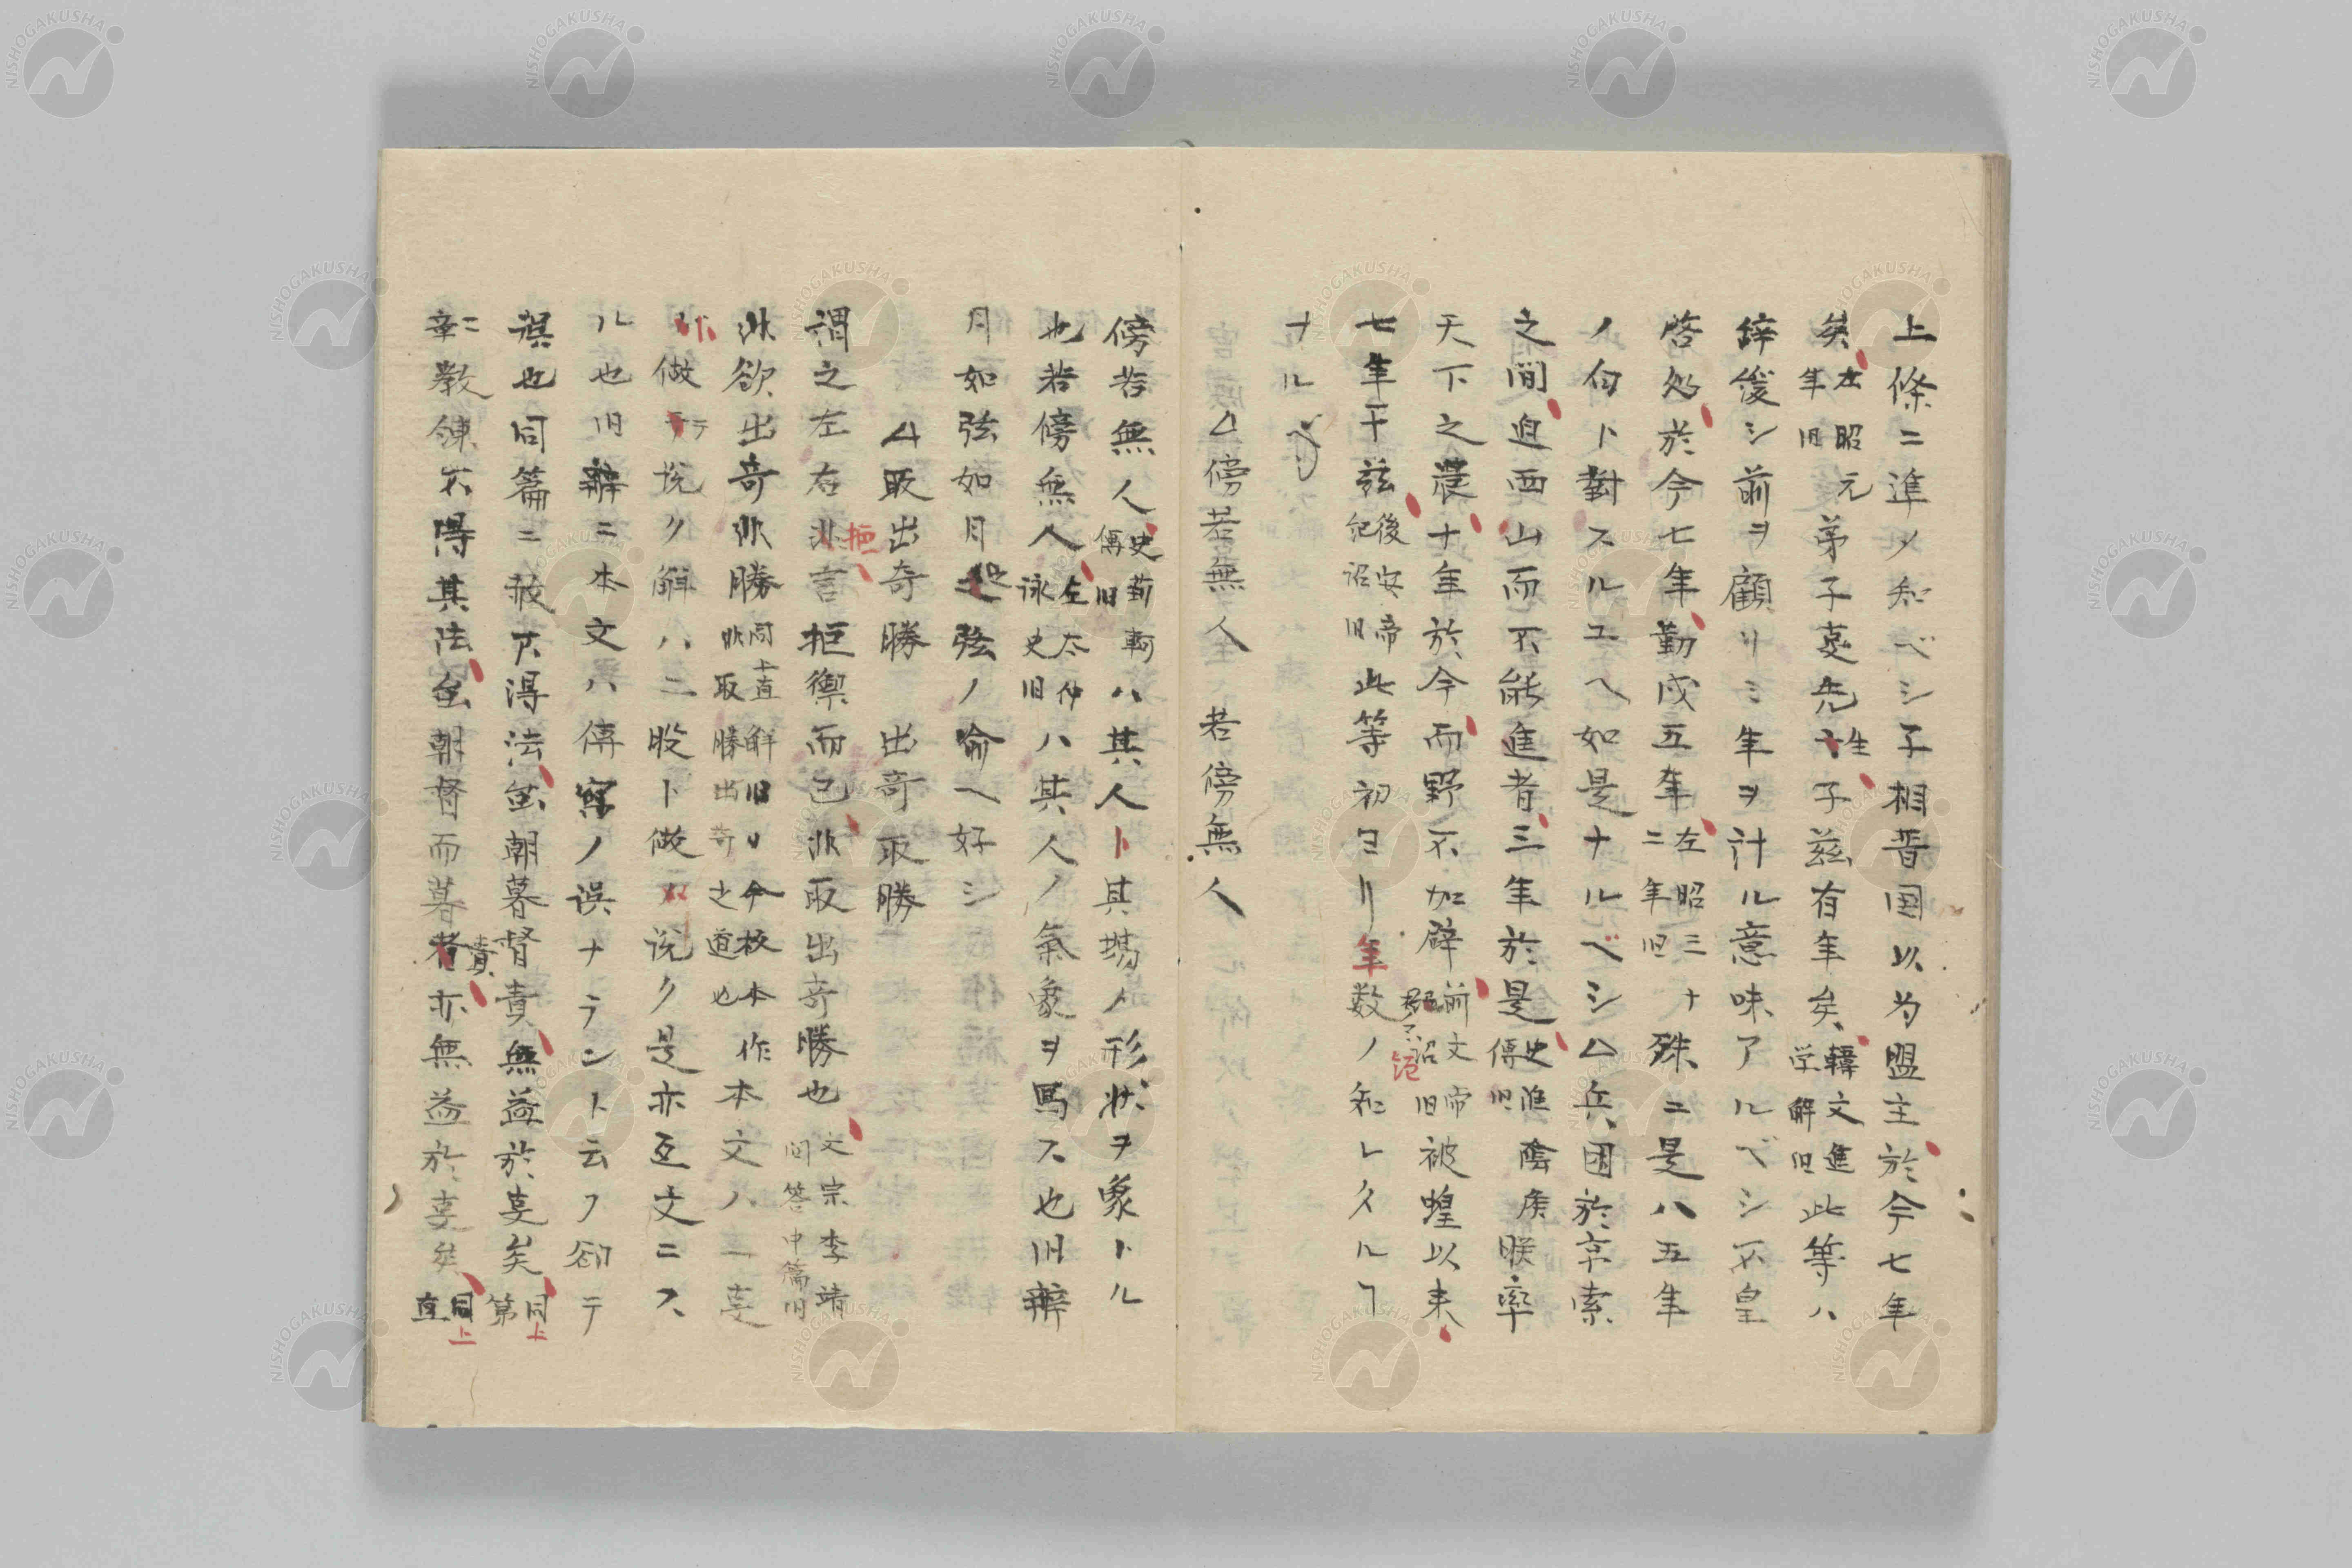 上條ニ準ノ知ベシ子相晋国以为盟主於今七年
矣左昭元年旧弟子㕝先生子茲有年矣韓文進学解旧此等ハ
辞緩シ前ヲ顧リミ年ヲ計ル意味アルベシ不皇
啓処於今七年勤戍五年左昭三二年旧ナ殊ニ是ハ五年
ノ句ト對スルユヘ如是ナルベシム兵困於京索
之間迫西山而不能進者三年於是史淮陰侯傳旧朕率
天下之農十年於今而野不加辟前文帝詔旧被蝗以来
七年于茲後安帝紀詔旧此等初ヨリ年数ノ知レタルヿ
ナルベシ
△傍若無人 若傍無人
傍若無人史荊軻傳旧ハ其人ト其場ノ形状ヲ象トル
也若傍無人左太冲詠史旧ハ其人ノ氣象ヲ寫ス也旧辨
月如弦如月之弦ノ喻ヘ好シ
△取出奇勝 出奇取勝
謂之左右拒言拒禦而已非取出奇勝也文宗李靖問答中篇旧
非欲出奇取勝同上直解旧リ今校本作非取勝出奇之道也本文ハ一㕝
ニ做テ説ク解ハ二股ト做乄説ク是亦互文ニス
ル也旧辨ニ本文ハ傳寫ノ误ナラント云フ卻テ
誤也同篇ニ教不得法虽朝暮督責無益於㕝矣同上第
二章教錬不得其法虽朝督而暮責亦無益於㕝矣同上直